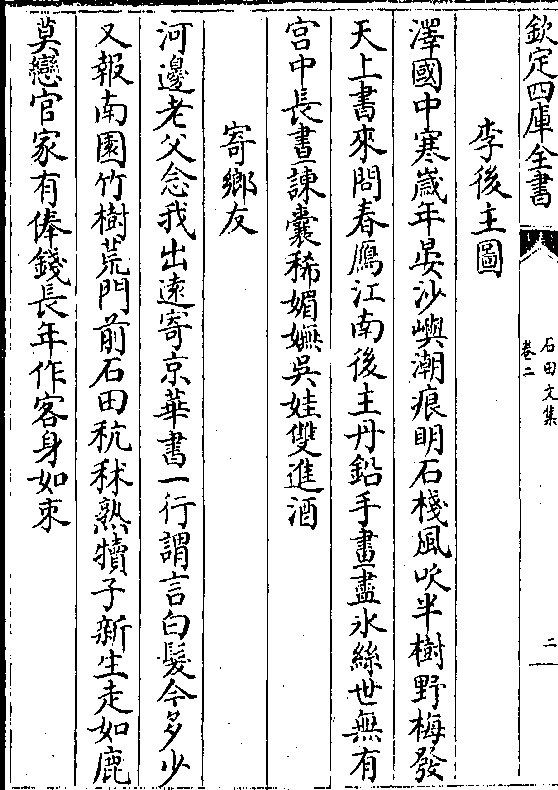 欽定四庫全書
石田文集
卷二
二
李後主圖
澤國中寒歲年晏沙嶼潮痕明石棧風吹半樹野梅發
天上書來問春鴈江南後主丹鉛手畫盡氷絲世無有
宫中長晝諫囊稀媚嫵吳娃雙進酒
寄鄉友
河邊老父念我出逺寄京華書一行謂言白髮今多少
又報南園竹樹荒門前石田秔秫熟犢子新生走如鹿
莫戀官家有俸錢長年作客身如束